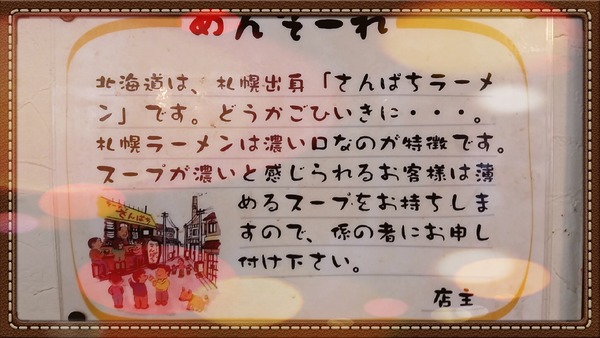 めんそーれ
北海道は、札幌出身「さんぱちラーメ
ン」です。どうかごひいきに・・・。
札幌ラーメンは濃い口なのが特徴です。
スープが濃いと感じられるお客様は薄
めるスープをお持ちしま
すので、係の者にお申し
付け下さい。
店主
さんぱち